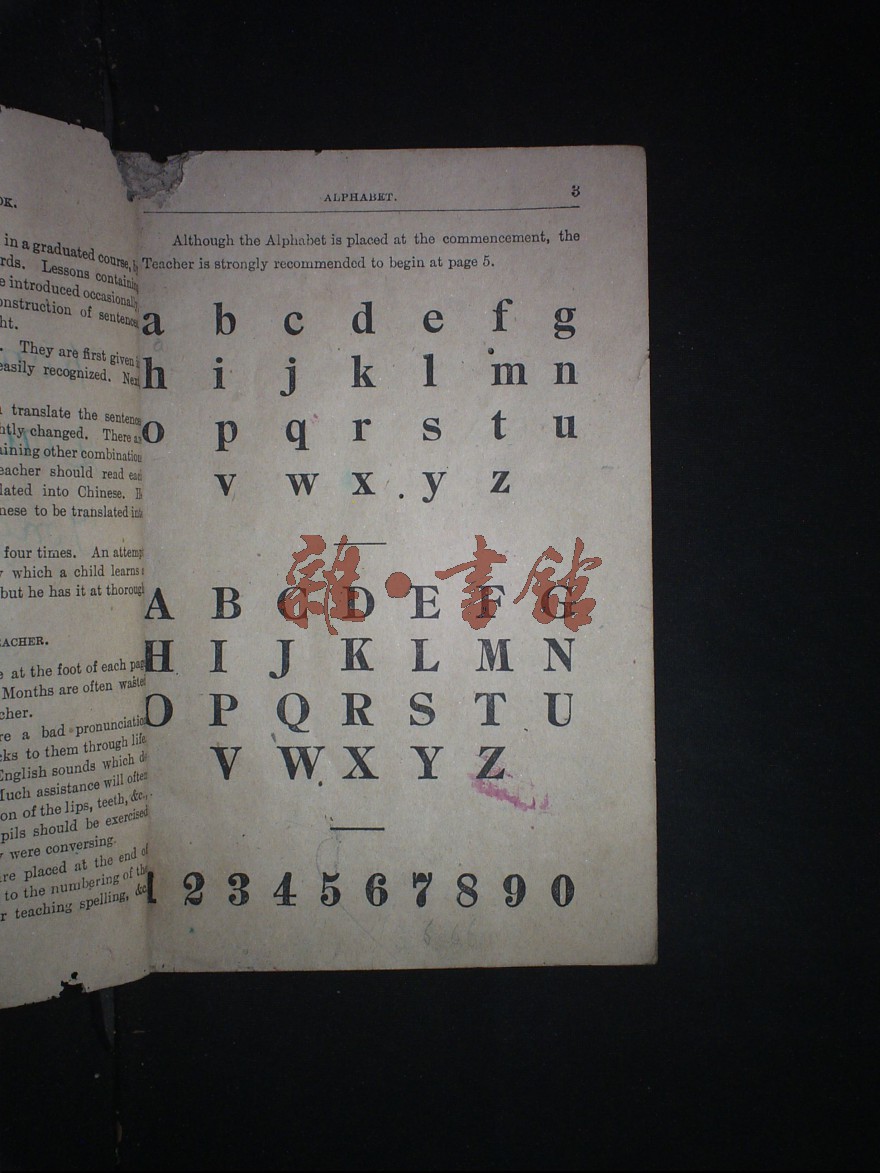 OK.
in a graduated course, by
rds. Lessons containing
e introduced occasionally
onstruction of sentences
ht.
. They are first given
easily recognized. Next
translate the sentences
htly changed. There are
ining other combination
eacher should read each
lated into Chinese.
nese to be translated into
four times. An attempt
which a child learns
but he has it at thorough
EACHER.
e at the foot of each page
Months are often wasted
cher.
re a bad pronunciation
cks to them through life.
English sounds which do
Much assistance will often
on of the lips, teeth, &c.,
pils should be exercised
were conversing.
re placed at the end of
to the numbering of the
r teaching spelling, &c.
ALPHABET. 3
Although the Alphabet is placed at the commencement, the
Teacher is strongly recommended to begin at page 5.
a b c d e f g
h i j k l m n
o p q r s t u
v w x y z
雜·書館
A B C D E F G
H I J K L M N
O P Q R S T U
V W X Y Z
1 2 3 4 5 6 7 8 9 0